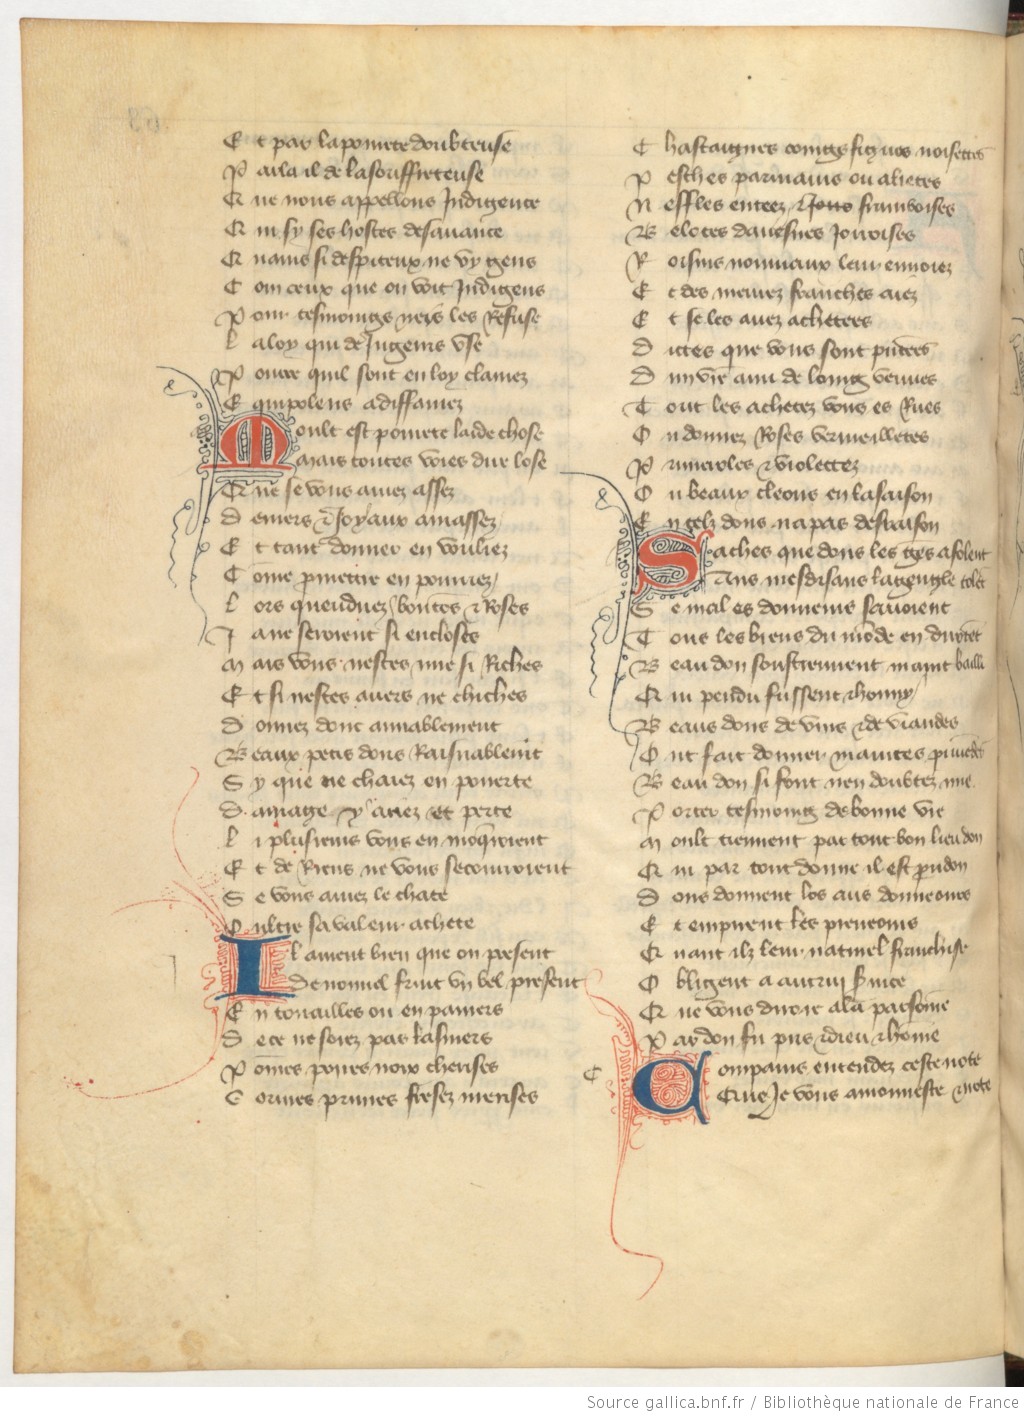 Et par la povrete doubteuse
Parla il de la souffreteuse
Que nous appellons Indigence
Qui sy ses hostes desavance
Quamis si despiteux ne vy gens
Com ceux que on voit Indigens
Pour tesmoings neis les Refuse
La loy qui de Jugems use
Pource quil sont en loy clamez
Equipolens a diffamez
Moult est povrete laide chose
Mais toutes voies dire lose
Que se vous aviez assez
Deniers et Joyaux amassez
Et tant donner en vouliez
Come pmettre en pourriez
Lors queudriez boutos et Roses
Ja ne seroient si encloses
Mais vous nestes mie si Riches
Et si nestes avers ne chiches
Donnez donc amiablement
Beaux petis dons Raisnablemt
Sy que ne chaiez en poverte
Damage y ariez et perte
Li plusieurs vous en moqroient
Et de Riens ne vous secourroient
Se vous aviez le chate
Oultre sa valeur achete
Il avient bien que on present
De nouviel fruit un bel present
En touailles ou en paniers
De ce ne soiez pas lasniers
Pomes poires noix cherises
Cormes prunes freses merises
Chastaignes coings figues noisettes
Pesches parmains ou alietes
Neffles entees et Jons framboises
Beloces davesnes Jorroises
Roisins nouveaux leur envoiez
Et des meures franches aiez
Et se les avez achetees
Dictes que vous sont presentees
Dun vre ami de loing venues
Tout les achetez vous es Rues
Ou donnez Roses vermeilletes
Primeroles et violettez
Ou beaux cleons en la saison
En telz dons na pas desraison
Saches que dons les ges afolent
Aus mesdisans la gengle tolet
Se mal es donneurs savoient
Tous les biens du mode en diroiet
Beau don soustiennent maint bailli
Qui pendu fussent et honny
Beaus dons de vins et de viandes
Ont fait donner maintes pvendes
Beau don si font nen doubtez mie
Porter tesmoing de bonne vie
Moult tiennent par tout bon lieu don
Qui par tout donne il est pudon
Dons donnent los aus donneours
Et empirent les preneours
Quant ilz leur naturel franchise
Obligent a autruy svice
Que vous diroie a la parsome
Par don fu pris et dieu et home
Compains entendez ceste note
Que Je vous amonneste et note
C